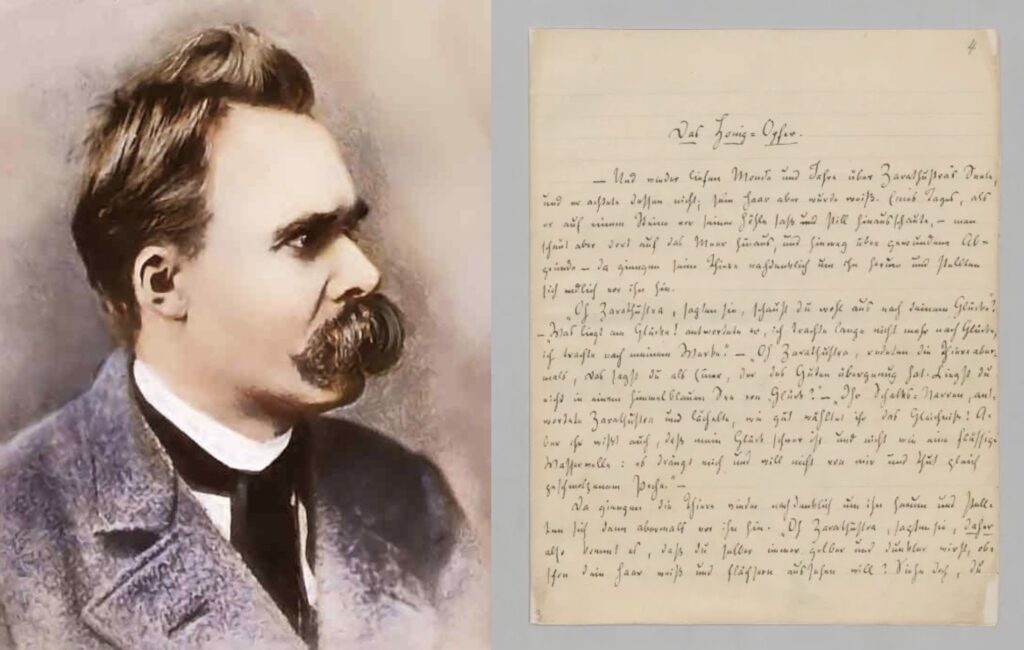 4
Das Honig-Opfer.
— Und wieder liefen Monde und Jahre über Zarathustra's Seele,
und er achtete dessen nicht; sein Haar aber wurde weiß. Eines Tages, als
er auf einem Steine vor seiner Höhle saß und still hinausschaute, — man
schaut aber dort auf das Meer hinaus, und hinweg über gewundene Ab-
gründe — da giengen seine Thiere nachdenklich um ihn herum und stellten
sich endlich vor ihn hin.
„Oh Zarathustra, sagten sie, schaust du wohl aus nach deinem Glücke?"
— „Was liegt am Glücke! antwortete er, ich trachte lange nicht mehr nach Glücke,
ich trachte nach meinem Werke." — „Oh Zarathustra, redeten die Thiere aber-
mals, Das sagst du als Einer, der des Guten übergenug hat. Liegst du
nicht in einem himmelblauen See von Glück?" — „Ihr Schalks-Narren, ant-
wortete Zarathustra und lächelte, wie gut wähltet ihr das Gleichniß! A-
ber ihr wißt auch, daß mein Glück schwer ist und nicht wie eine flüssige
Wasserwelle: es drängt mich und will nicht von mir und thut gleich
geschmolzenem Peche." —
Da giengen die Thiere wieder nachdenklich um ihn herum und stell-
ten sich dann abermals vor ihn hin. „Oh Zarathustra, sagten sie, daher
also kommt es, daß du selber immer gelber und dunkler wirst, ob-
schon dein Haar weiß und flächsern aussehen will? Siehe doch, du